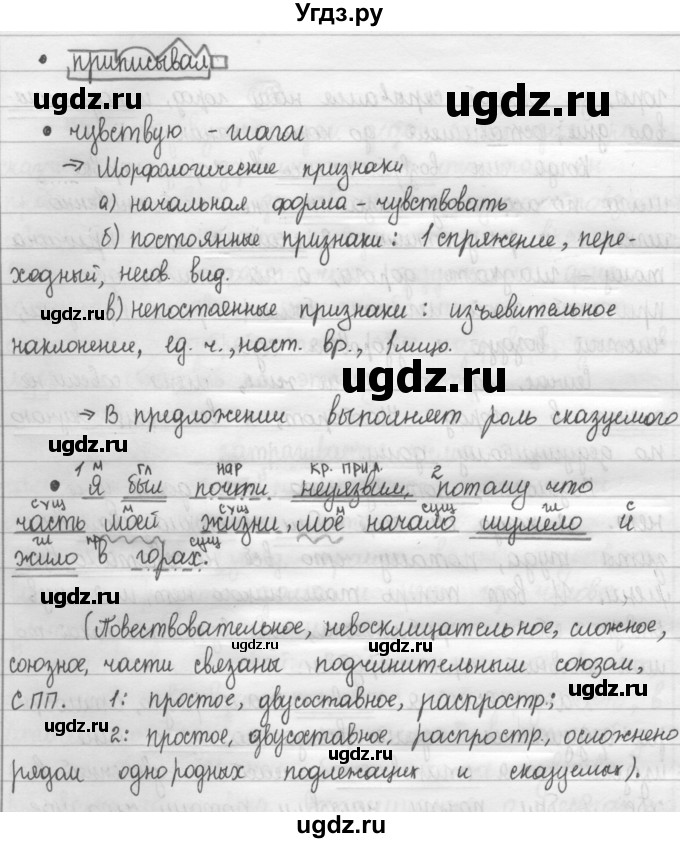 Угдз.ру
• приписывал
ugdz.ru ugdz.ru
• чувствую - глагол
→ Морфологические признаки
а) начальная форма - чувствовать
б) постоянные признаки: 1 спряжение, пере-
ходный, несов. вид.
ugdz.ru в) непостоянные признаки: изъявительное
наклонение, ед. ч., наст. вр., 1 лицо.
ugdz.ru
→ В предложении выполняет роль сказуемого
ugdz.ru
1 м гл нар кр. прил. 2
• Я был почти неуязвим, потому что
сущ м сущ м сущ гл с
часть моей жизни, моё начало шумело и
гл пр сущ
жило в горах.
ugdz.ru
(Повествовательное, невосклицательное, сложное,
союзное, части связаны подчинительным союзом,
СПП. 1: простое, двусоставное, распростр.;
ugdz.ru
ugdz.ru
2: простое, двусоставное, распростр., осложнено
рядом однородных подлежащих и сказуемых).
ugdz.ru
ugdz.ru